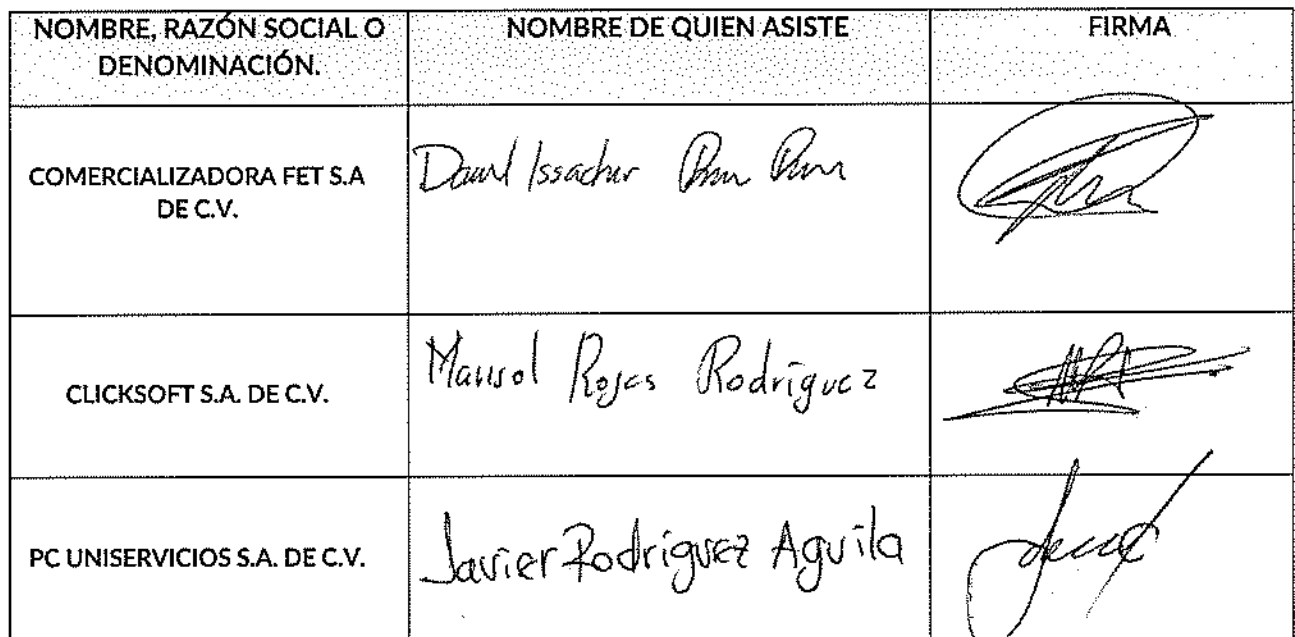 NOMBRE, RAZÓN SOCIAL O
DENOMINACIÓN.
NOMBRE DE QUIEN ASISTE
FIRMA
COMERCIALIZADORA FET S.A
DE C.V.
Issachar
CLICKSOFT S.A. DE C.V.
Marisol Rojas Rodríguez
PC UNISERVICIOS S.A. DE C.V.
Javier Rodriguez Aguila